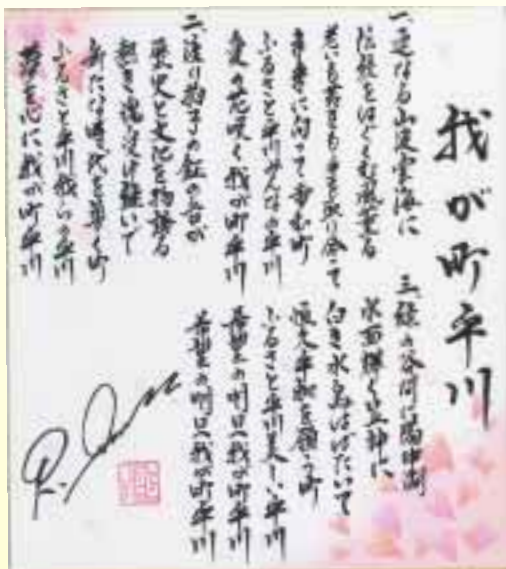 我が町平川
一、連なる山波雲海に
伝統をはぐくむ風薫る
老いも若きも手を取り合って
未来に向って歩む町
ふるさと平川みんなの平川
愛の花咲く我が町平川
二、渡り拍子の鉦の音が
歴史と文化を物語る
熱き魂受け継いで
新たな時代を築く町
ふるさと平川我らの平川
夢を心に我が町平川
三、緑の谷間に陽は
水面輝く
白き水鳥はばたいて
恒久平和を願う町
ふるさと平川美しい平川
希望の明日へ我が町平川
希望の明日へ我が町平川